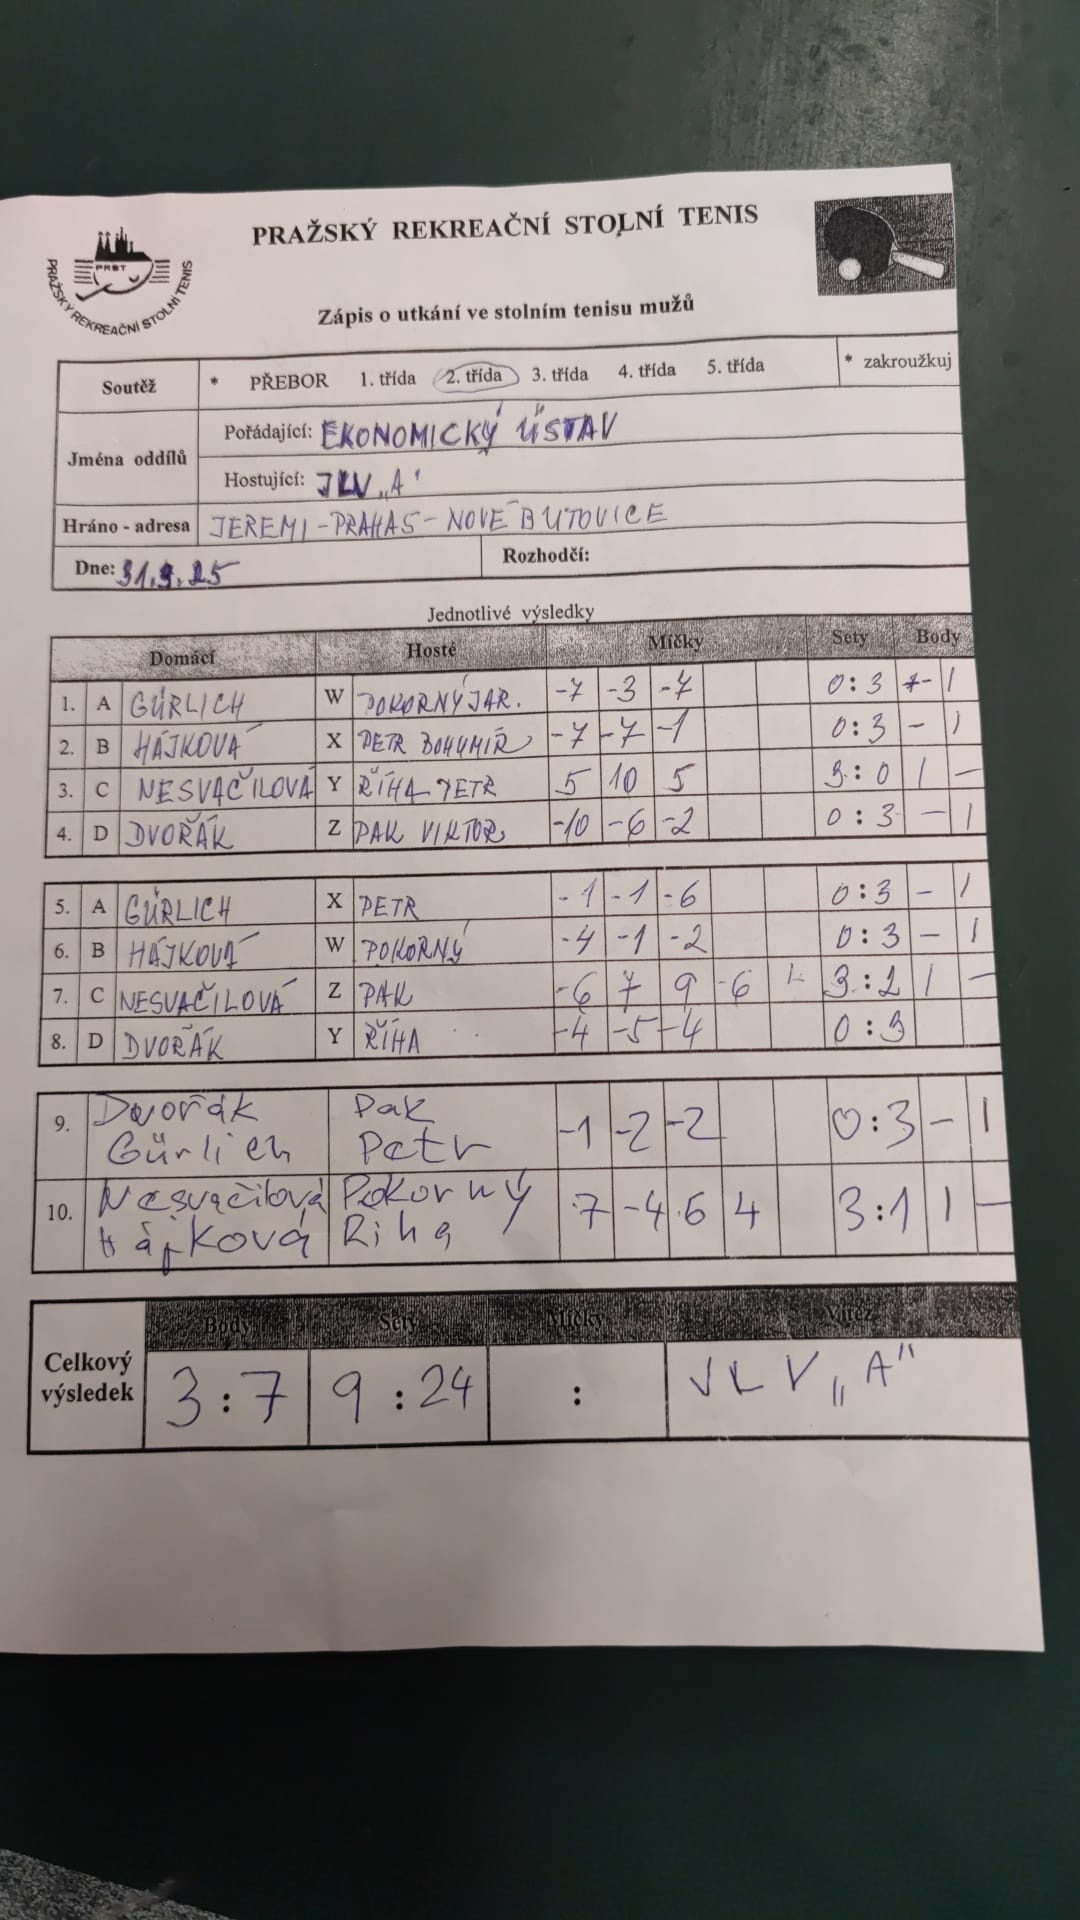 PRAŽSKÝ REKREAČNÍ STOLNÍ TENIS
PRST
PRAŽSKÝ REKREAČNÍ STOLNÍ TENIS
Zápis o utkání ve stolním tenisu mužů
Soutěž * PŘEBOR 1. třída 2. třída 3. třída 4. třída 5. třída * zakroužkuj
Jména oddílů
Pořádající: EKONOMICKÝ ÚSTAV
Hostující: JLV „A“
Hráno - adresa JEREMI-PRAHA5-NOVÉ BUTOVICE
Dne: 31.9.25 Rozhodčí:
Jednotlivé výsledky
Domácí Hosté Míčky Sety Body
1. A GÜRLICH W POKORNÝ JAR. -7 -3 -7 0:3 - 1
2. B HÁJKOVÁ X PETR BOHUMIR -7 -7 -1 0:3 - 1
3. C NESVAČILOVÁ Y ŘÍHA PETR 5 10 5 3:0 1 -
4. D DVOŘÁK Z PAK VIKTOR -10 -6 -2 0:3 - 1
5. A GÜRLICH X PETR -1 -1 -6 0:3 - 1
6. B HÁJKOVÁ W POKORNÝ -4 -1 -2 0:3 - 1
7. C NESVAČILOVÁ Z PAK -6 7 9 -6 3:2 1 -
8. D DVOŘÁK Y ŘÍHA -4 -5 -4 0:3
9. Dvořák Pak -1 -2 -2 0:3 - 1
Gürlich Petr
10. Nesvačilová Pokorný 7 -4 6 4 3:1 1 -
Hájková Riha
Body Sety Míčky Vítěz
Celkový výsledek 3:7 9:24 : JLV „A“